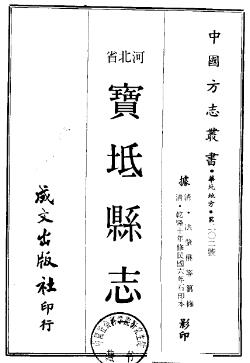 中國方志叢書·華北地方·第二〇三號
據清·洪肇楙等纂修
清·乾隆十年修民國六年石印本影印
河北省
寶坻縣志
成文出版社印行
藏書